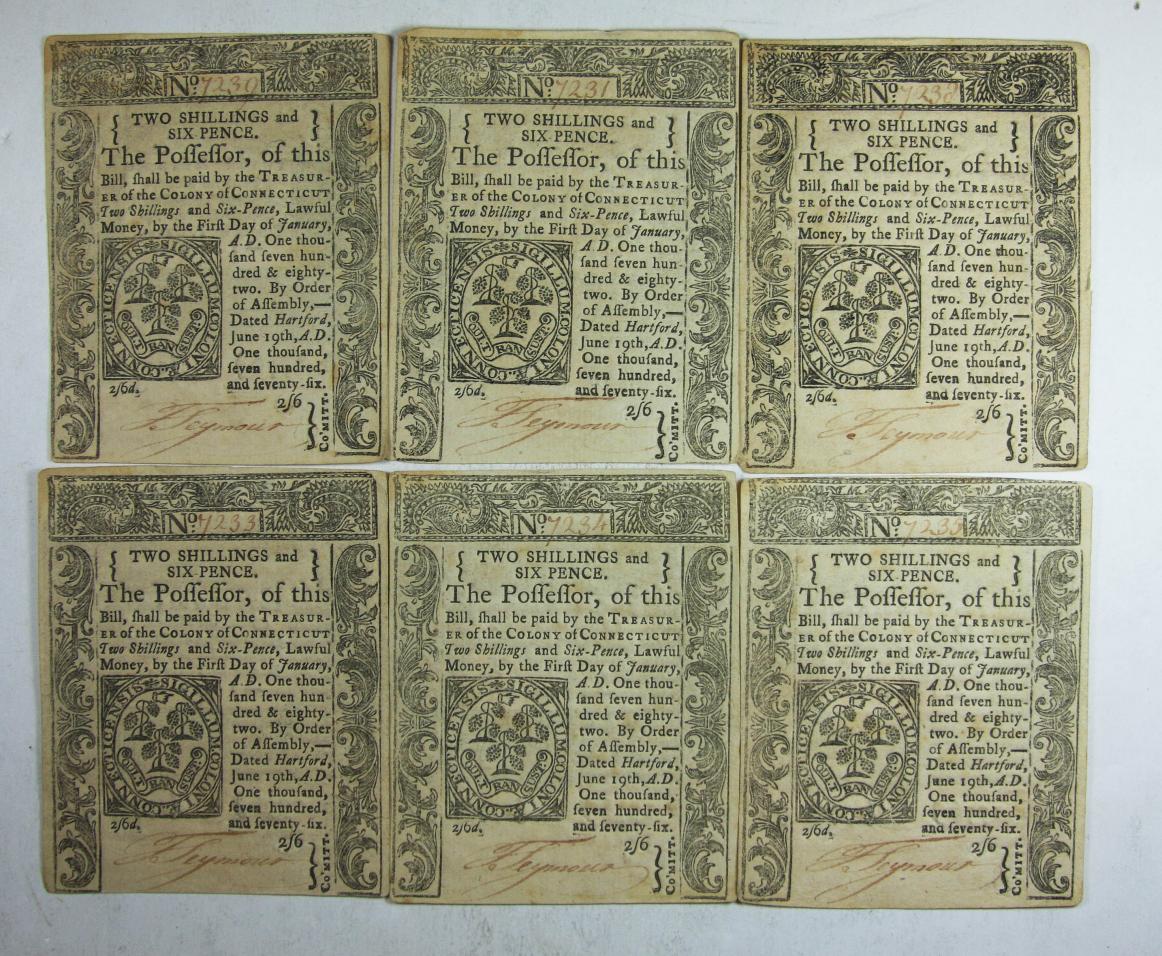 No:
{ TWO SHILLINGS and }
SIX PENCE.
The Poſſeſſor, of this
Bill, ſhall be paid by the TREASUR-
ER of the COLONY of CONNECTICUT
Two Shillings and Six-Pence, Lawful
Money, by the Firſt Day of January,
A.D. One thou-
ſand ſeven hun-
dred & eighty-
two. By Order
of Aſſembly,—
Dated Hartford,
June 19th, A.D.
One thouſand,
ſeven hundred,
and ſeventy-ſix.
SIGILLUM.COLONIÆ.CONNECTICENSIS
QUI TRAN SUST.
2ſ6d.
2ſ6
Seymour
} Co'MITT.
No: 7231
{ TWO SHILLINGS and }
SIX PENCE.
The Poſſeſſor, of this
Bill, ſhall be paid by the TREASUR-
ER of the COLONY of CONNECTICUT
Two Shillings and Six-Pence, Lawful
Money, by the Firſt Day of January,
A.D. One thou-
ſand ſeven hun-
dred & eighty-
two. By Order
of Aſſembly,—
Dated Hartford,
June 19th, A.D.
One thouſand,
ſeven hundred,
and ſeventy-ſix.
SIGILLUM.COLONIÆ.CONNECTICENSIS
QUI TRAN SUST.
2ſ6d.
2ſ6
Seymour
} Co'MITT.
No:
{ TWO SHILLINGS and }
SIX PENCE.
The Poſſeſſor, of this
Bill, ſhall be paid by the TREASUR-
ER of the COLONY of CONNECTICUT
Two Shillings and Six-Pence, Lawful
Money, by the Firſt Day of January,
A.D. One thou-
ſand ſeven hun-
dred & eighty-
two. By Order
of Aſſembly,—
Dated Hartford,
June 19th, A.D.
One thouſand,
ſeven hundred,
and ſeventy-ſix.
SIGILLUM.COLONIÆ.CONNECTICENSIS
QUI TRAN SUST.
2ſ6d.
2ſ6
Seymour
} Co'MITT.
No: 7233
{ TWO SHILLINGS and }
SIX PENCE.
The Poſſeſſor, of this
Bill, ſhall be paid by the TREASUR-
ER of the COLONY of CONNECTICUT
Two Shillings and Six-Pence, Lawful
Money, by the Firſt Day of January,
A.D. One thou-
ſand ſeven hun-
dred & eighty-
two. By Order
of Aſſembly,—
Dated Hartford,
June 19th, A.D.
One thouſand,
ſeven hundred,
and ſeventy-ſix.
SIGILLUM.COLONIÆ.CONNECTICENSIS
QUI TRAN SUST.
2ſ6d.
2ſ6
Seymour
} Co'MITT.
No: 7234
{ TWO SHILLINGS and }
SIX PENCE.
The Poſſeſſor, of this
Bill, ſhall be paid by the TREASUR-
ER of the COLONY of CONNECTICUT
Two Shillings and Six-Pence, Lawful
Money, by the Firſt Day of January,
A.D. One thou-
ſand ſeven hun-
dred & eighty-
two. By Order
of Aſſembly,—
Dated Hartford,
June 19th, A.D.
One thouſand,
ſeven hundred,
and ſeventy-ſix.
SIGILLUM.COLONIÆ.CONNECTICENSIS
QUI TRAN SUST.
2ſ6d.
2ſ6
Seymour
} Co'MITT.
No: 7235
{ TWO SHILLINGS and }
SIX PENCE.
The Poſſeſſor, of this
Bill, ſhall be paid by the TREASUR-
ER of the COLONY of CONNECTICUT
Two Shillings and Six-Pence, Lawful
Money, by the Firſt Day of January,
A.D. One thou-
ſand ſeven hun-
dred & eighty-
two. By Order
of Aſſembly,—
Dated Hartford,
June 19th, A.D.
One thouſand,
ſeven hundred,
and ſeventy-ſix.
SIGILLUM.COLONIÆ.CONNECTICENSIS
QUI TRAN SUST.
2ſ6d.
2ſ6
Seymour
} Co'MITT.